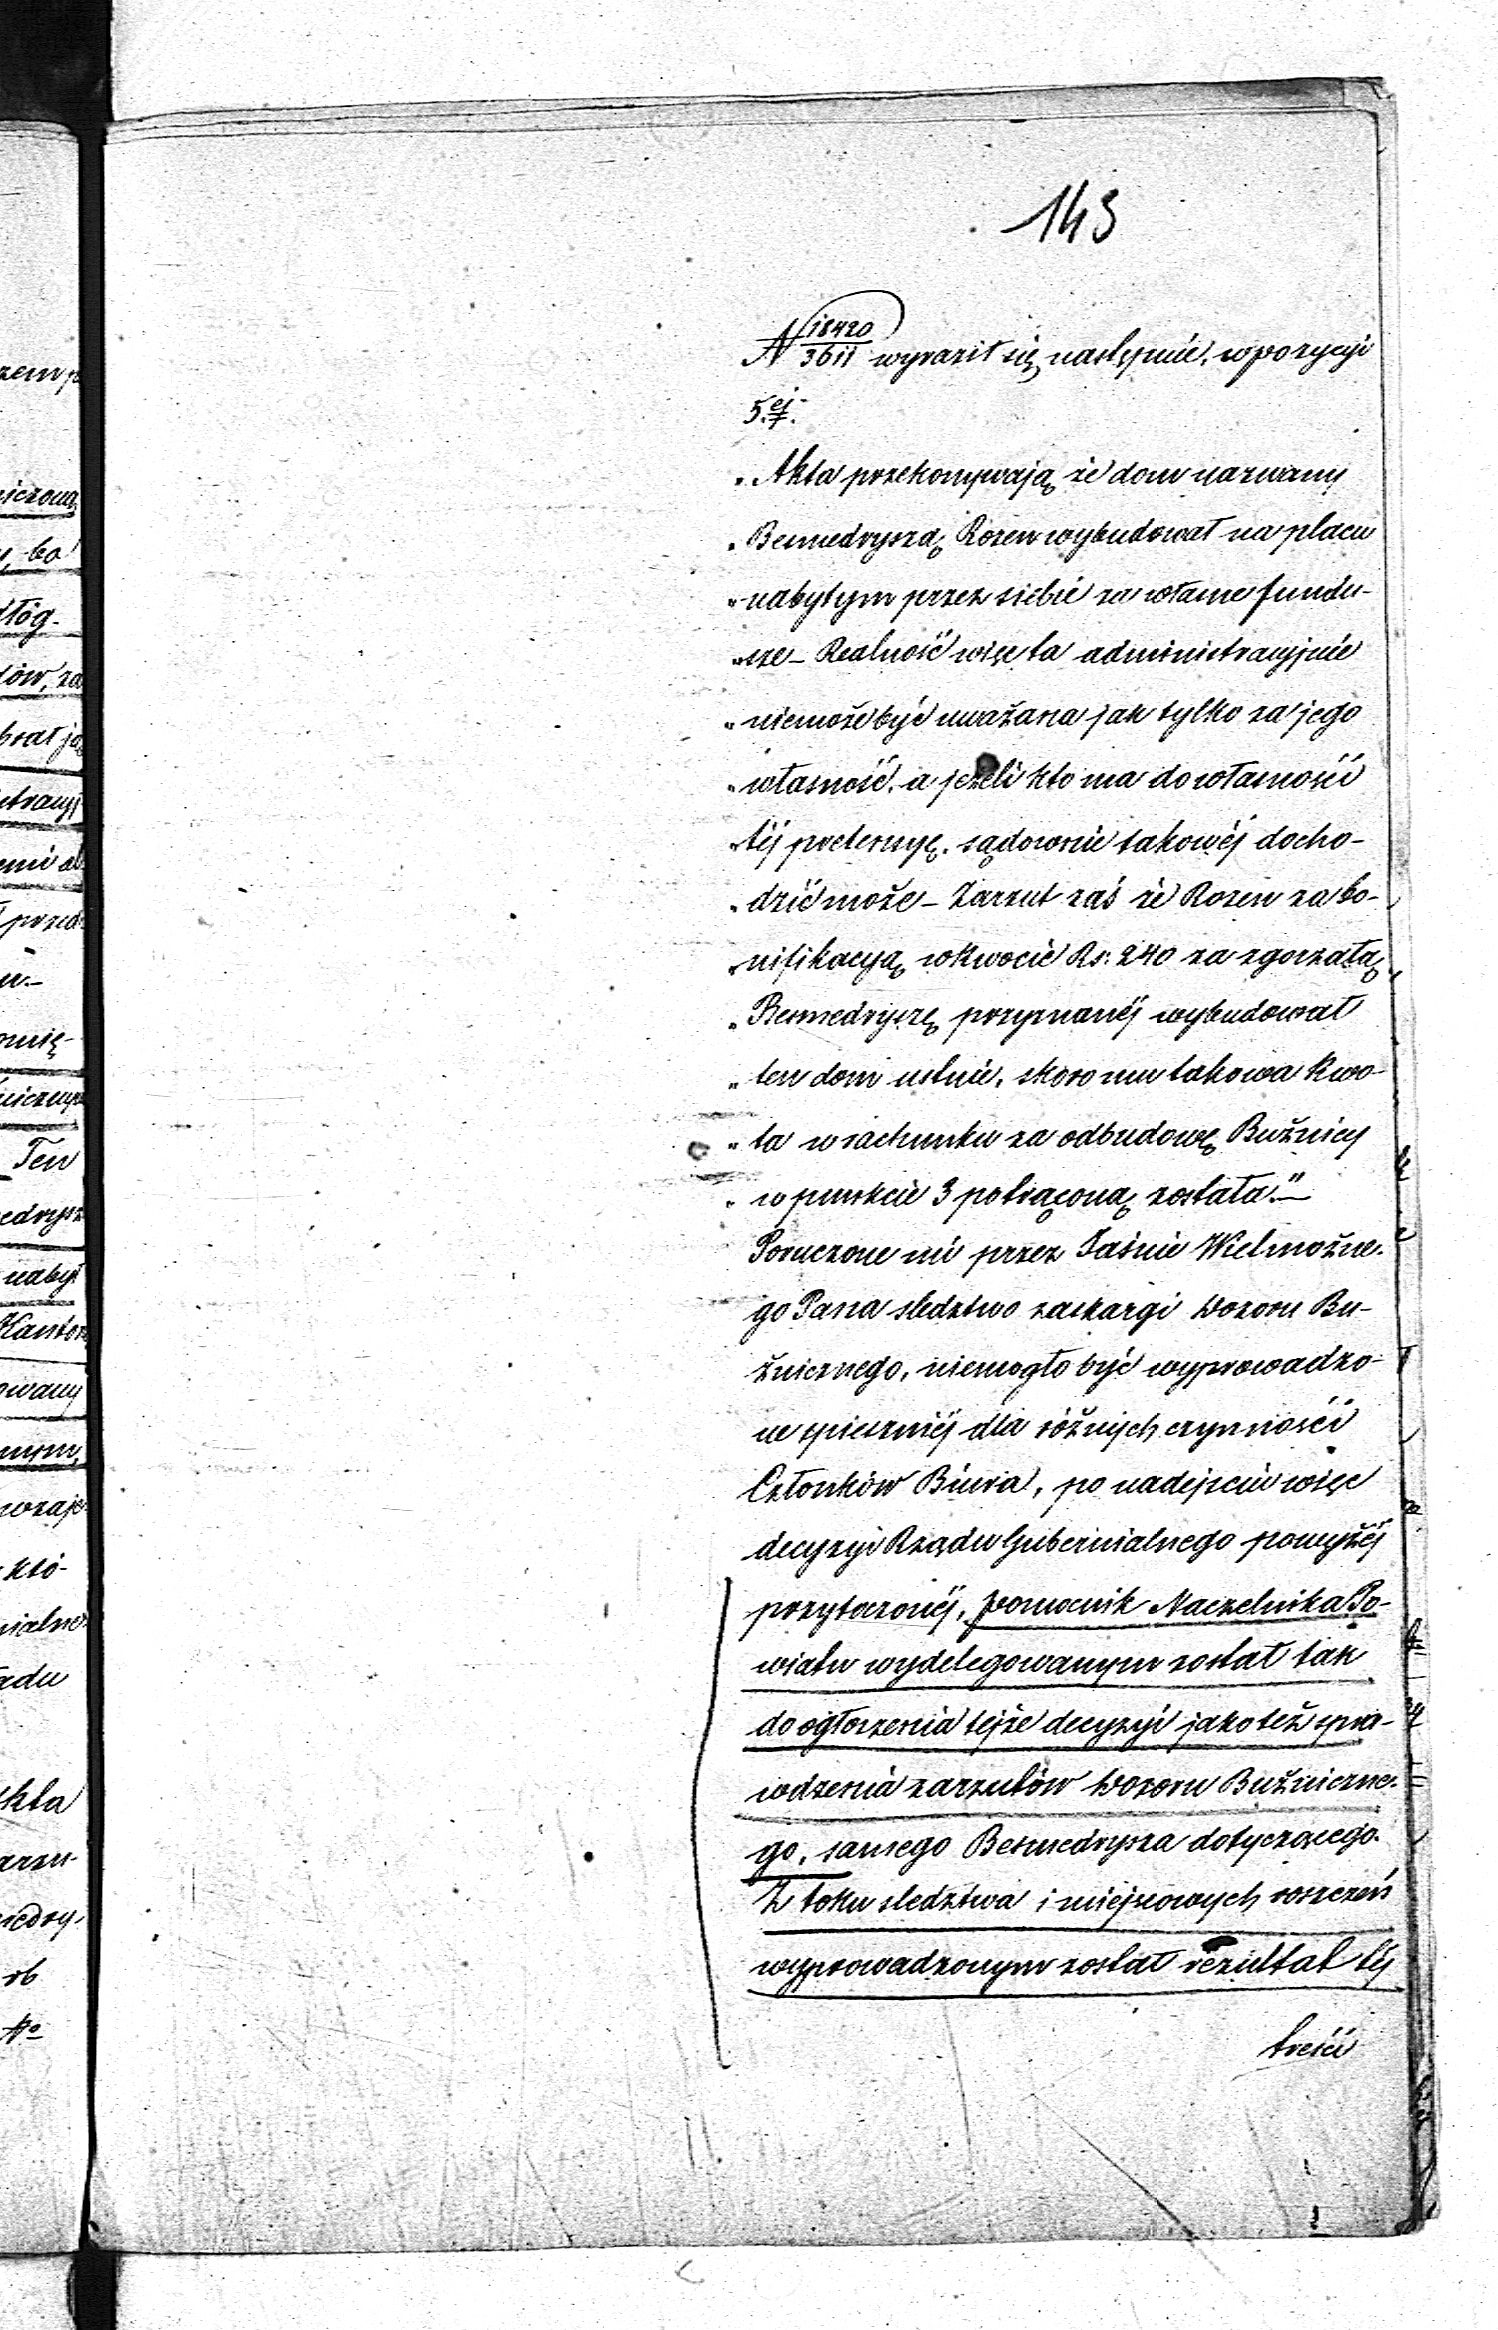 143
N 18420/3611 wyraził się następnie, w pozycyi
5.ej.
„Akta przekonywają że dom nazwany
„Besmedryszą Rosen wybudował na placu
„nabytym przez siebie za własne fundu-
„sze – Realność więc ta administracyjnie
„niemoże być uważana jak tylko za jego
„własność, a jeżeli kto ma do własności
„téj pretensyę, sądownie takowéj docho-
„dzić może – Zarzut zaś że Rosen za bo-
„nifikacyą w kwocie Rs: 240 za zgorzałą
„Besmedryszę przyznanéj wybudował
„ten dom ustnie, skoro mu takowa kwo-
„ta w rachunku za odbudowę Bużnicy
„w punkcie 3 potrąconą została."–
Poruczone mi przez Jaśnie Wielmożne-
go Pana sledztwo zaskargi Dozoru Bu-
żnicznego, niemogło być wyprowadzo-
ne spieszniéj dla różnych czynności
Członków Biura, po nadejściu więc
decyzyi Rządu Gubernialnego powyżéj
przytoczonéj, pomocnik Naczelnika Po-
wiatu wydelegowanym został tak
do ogłoszenia tejże decyzyi jakoteż spra-
wdzenia zarzutów Dozoru Bużniczne-
go, samego Besmedrysza dotyczącego.
Z toku sledztwa i miejscowych roszczeń
wyprowadzonym został rezultat téj
treści